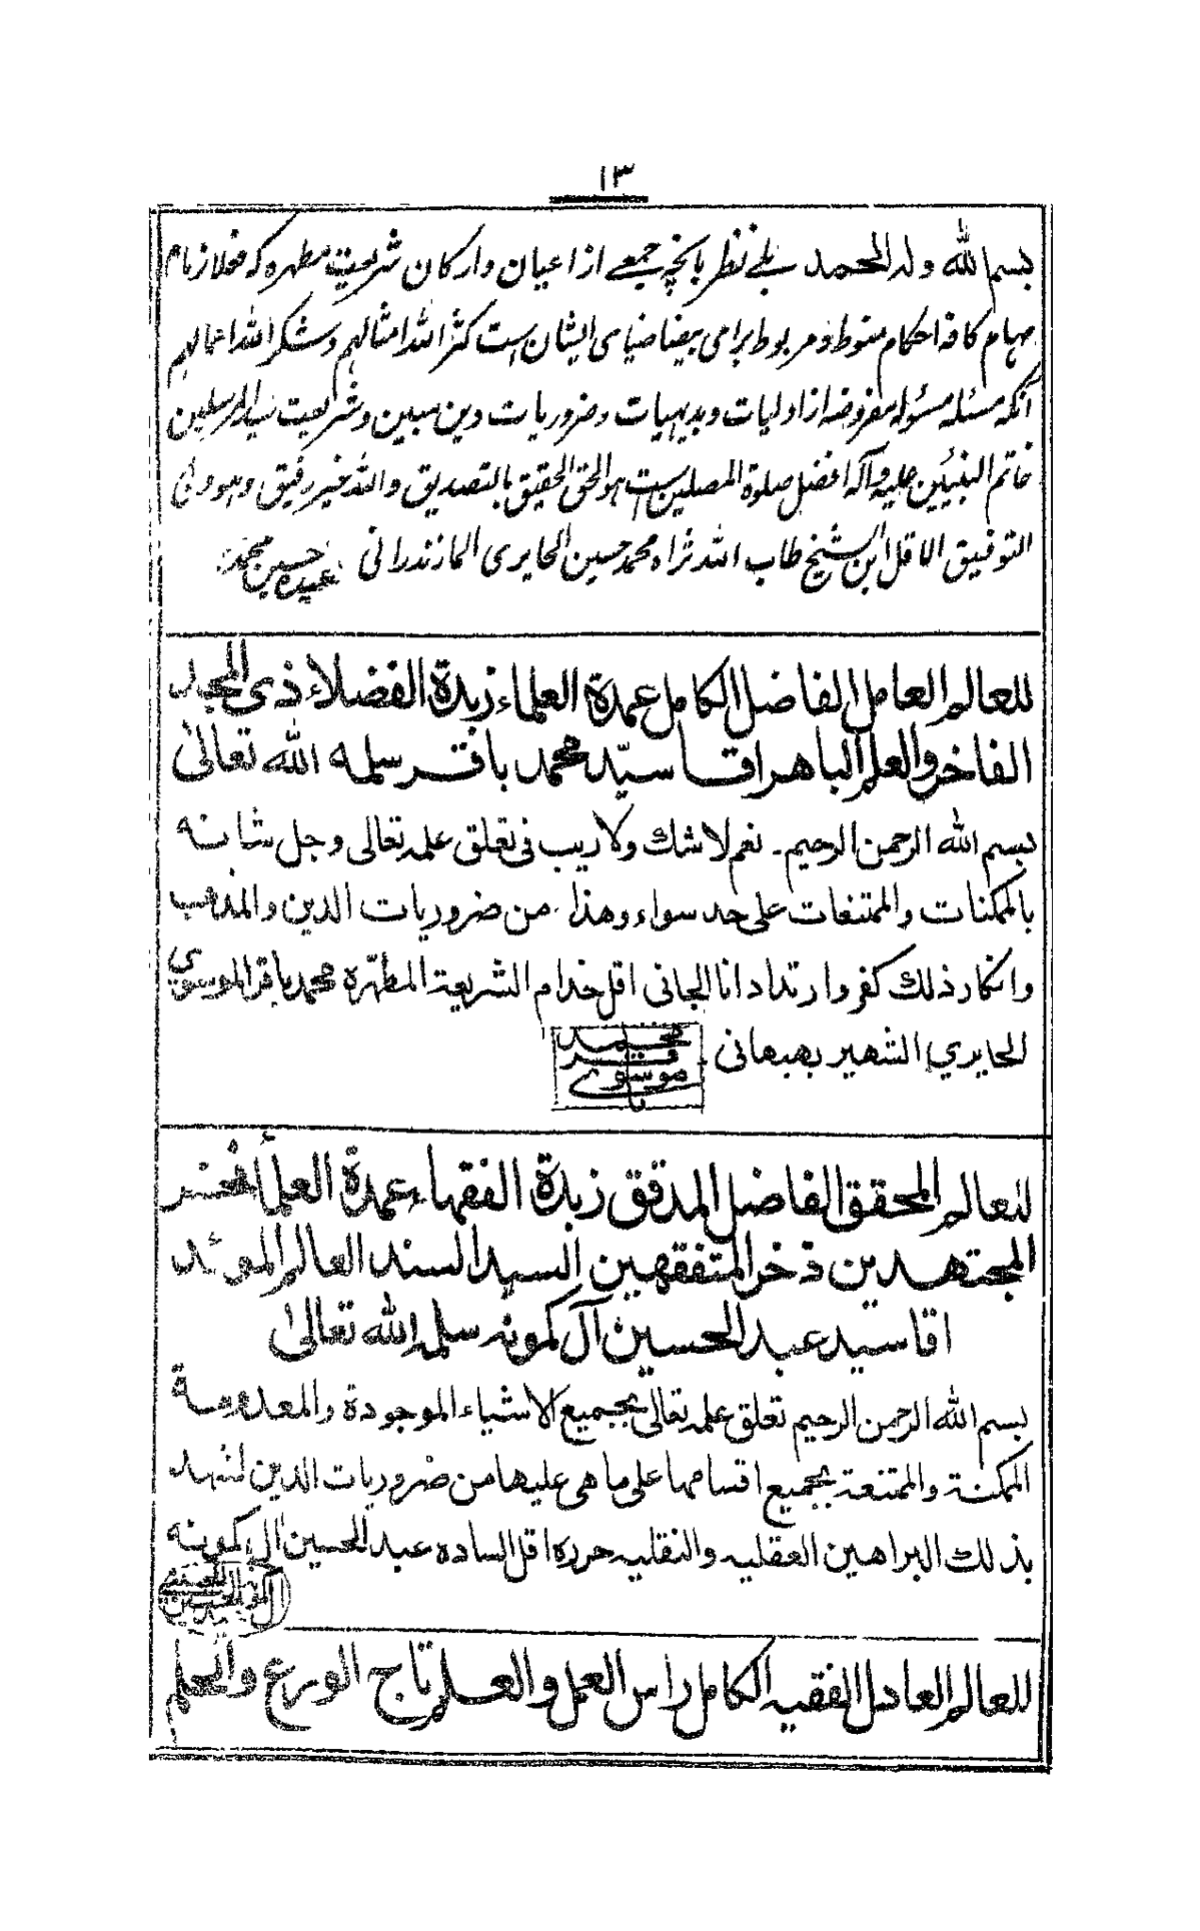 ١٣
بسم الله وله الحمد بلے نظر بانچه جمعے از اعیان و ارکان شریعت مطهره که فعلا زمام
مهام کافه احکام منوط و مربوط برامی بیضا ضیای ایشان است کثر الله امثالهم و شکر الله اعمالهم
آنکه مسئله مسئوله مفروضه از اولیات و بدیهیات و ضروریات دین مبین و شریعت سید المرسلین
خاتم النبیین علیه وآله افضل صلوة المصلین ست هو الحق الحقیق بالتصدیق والله خیر رفیق وهو ولی
التوفیق الاقل ابن الشیخ طاب الله ثراه محمد حسین الحایری المازندرانی عبده حسین محمد
للعالم العامل الفاضل الکامل عمدة العلماء زبدة الفضلاء ذی المجد
الفاخر والعلم الباهر اقا سیّد محمد باقر سلمه الله تعالیٰ
بسم الله الرحمن الرحیم۔ نعم لا شك ولا ریب فی تعلق علمه تعالی وجل شانه
بالممکنات والممتنعات علی حد سواء وهذا من ضروریات الدین والمذهب
وانکار ذلك کفر وارتداد انا الجانی اقل خدام الشریعة المطهّرة محمد باقر الموسوی
الحایری الشهیر بهبهانی۔ محمد باقر موسوے
للعالم المحقق الفاضل المدقق زبدة الفقهاء عمدة العلمأ فخر
المجتهدین ذخر المتفقهین السید السند العالم المؤید
اقا سید عبد الحسین آل کمونه سلمه الله تعالیٰ
بسم الله الرحمن الرحیم تعلق علمه تعالی بجمیع الاشیاء الموجودة والمعدومة
الممکنة والممتنعة بجمیع اقسامها علی ما هی علیها من ضروریات الدین لنهد
بذلك البراهین العقلیه والنقلیه حرره اقل الساده عبد الحسین آل کمونه
للعالم العادل الفقیه الکامل راس العمل والعلم تاج الورع والحلم